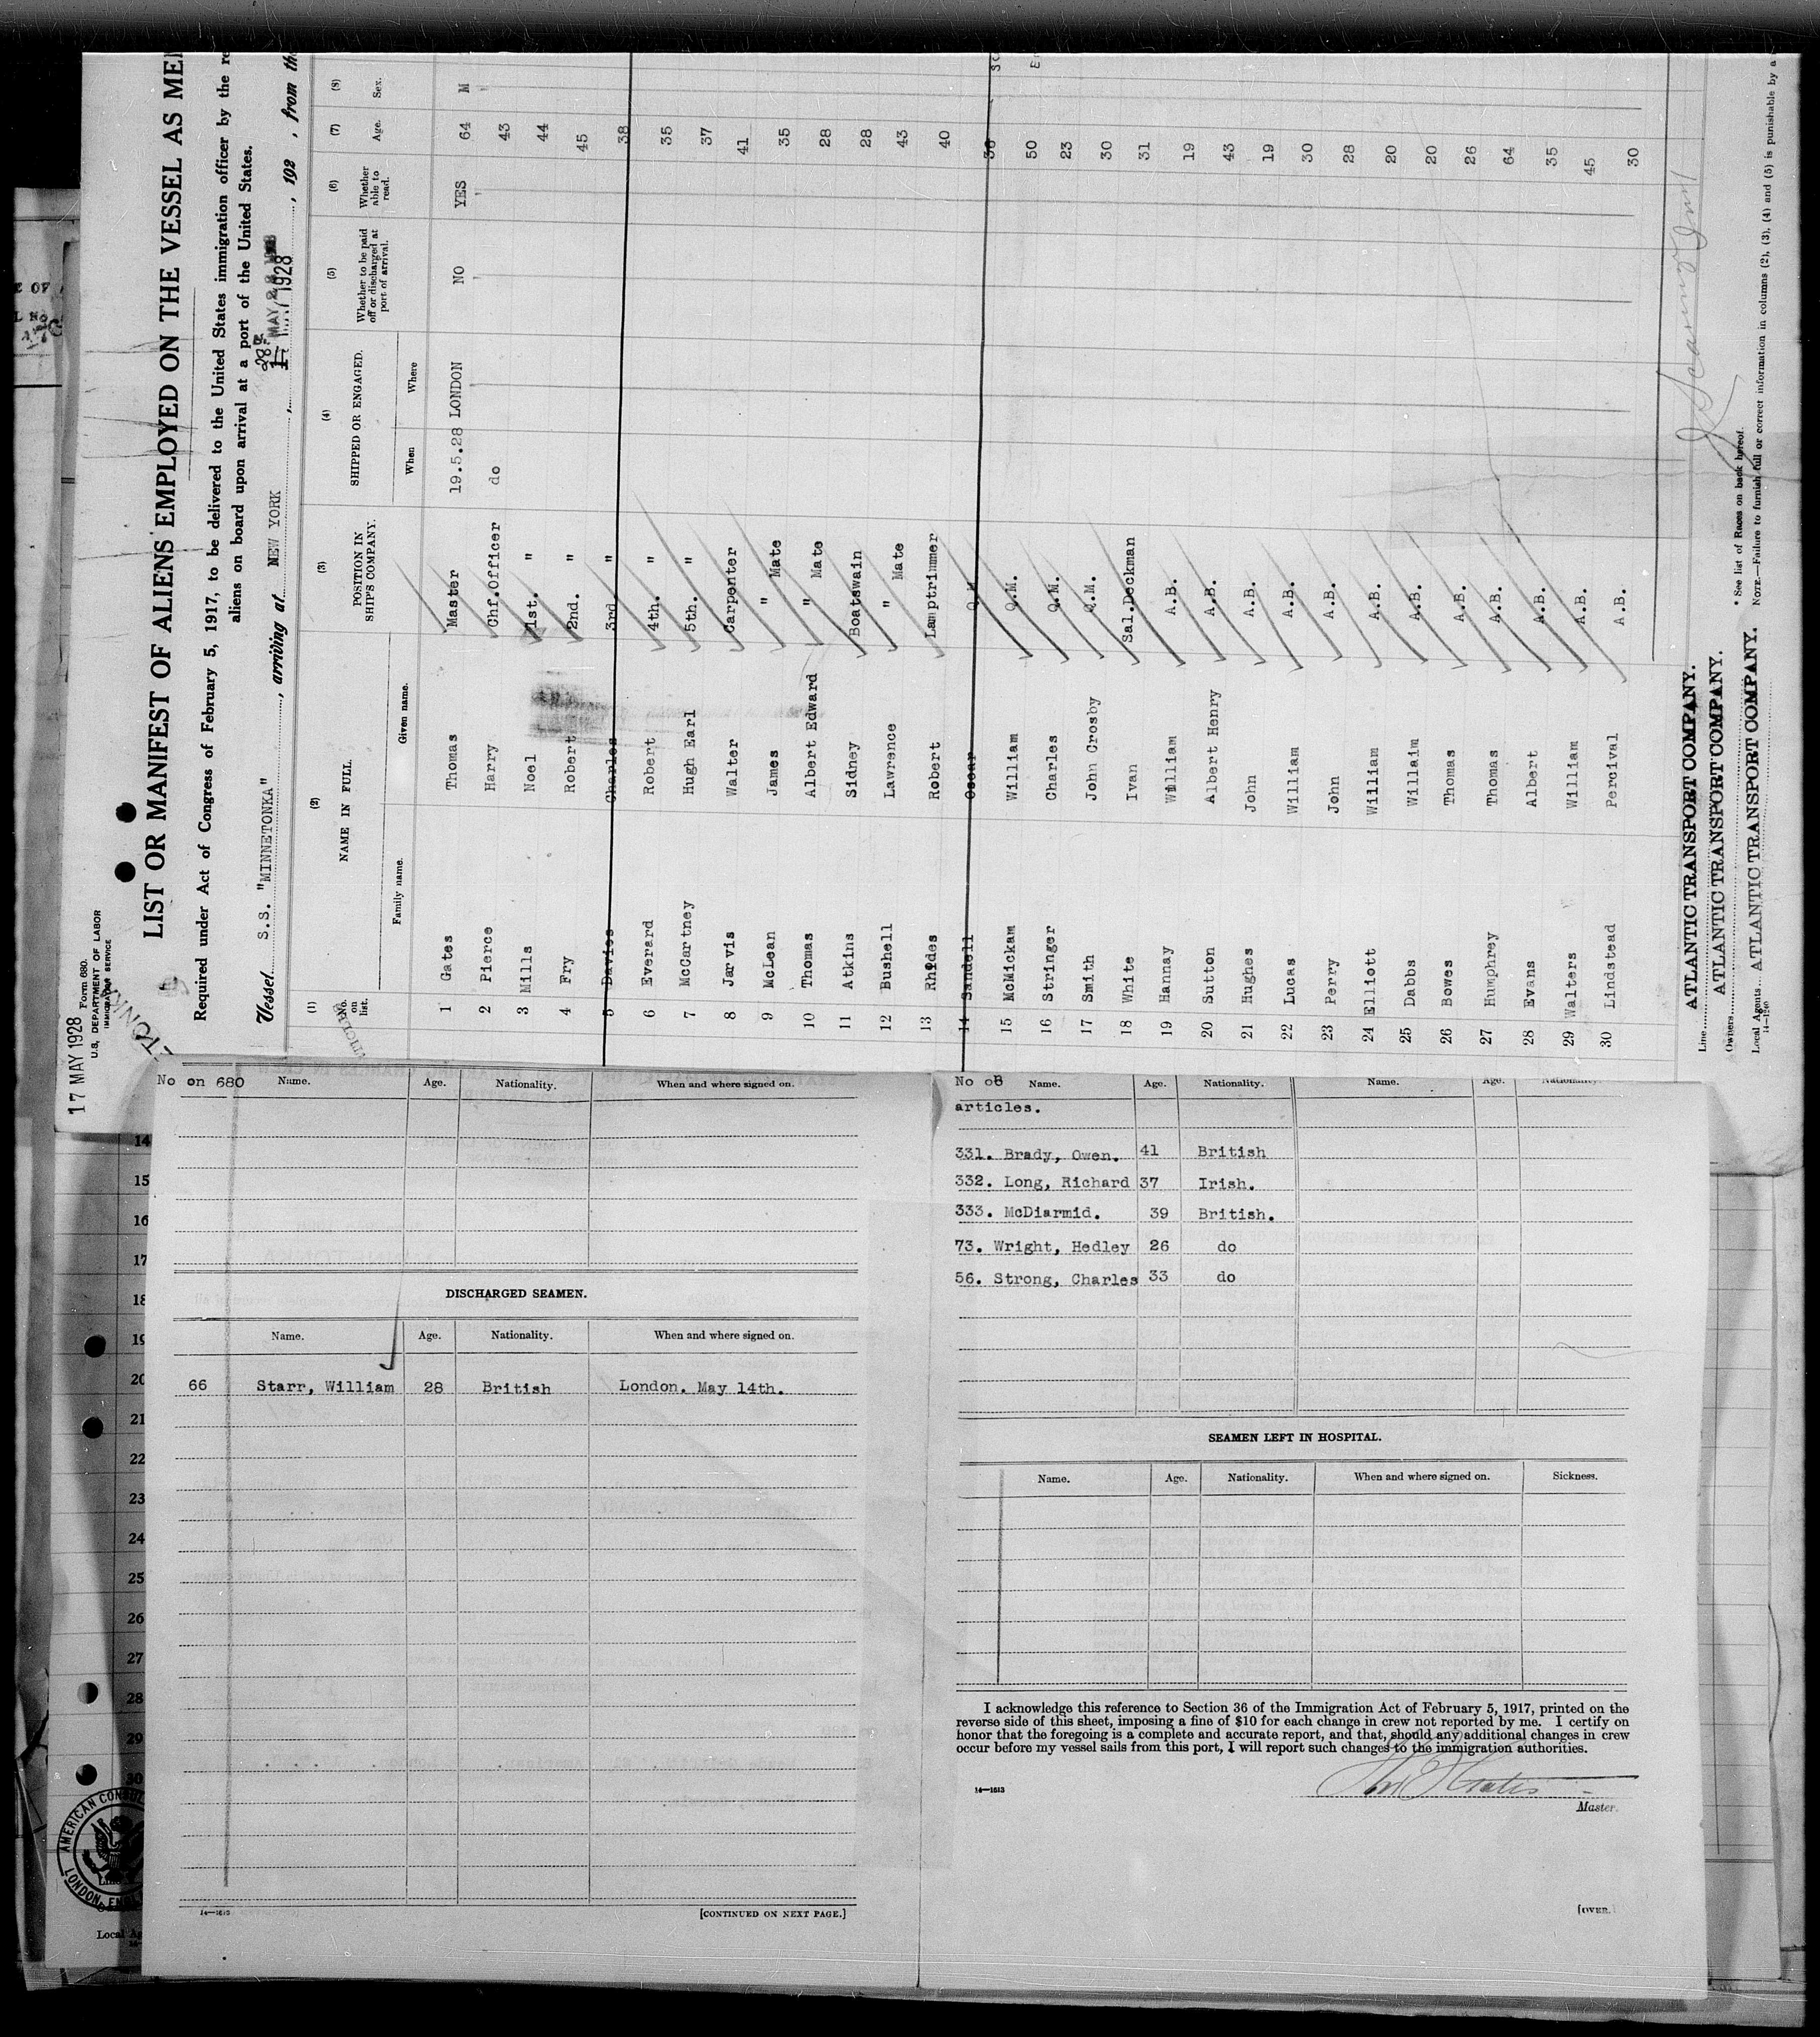 17 MAY 1928
Form 680.
U.S. DEPARTMENT OF LABOR
IMMIGRATION SERVICE
LIST OR MANIFEST OF ALIENS EMPLOYED ON THE VESSEL AS MEM
Required under Act of Congress of February 5, 1917, to be delivered to the United States immigration officer by the re
aliens on board upon arrival at a port of the United States.
Vessel S.S. "MINNETONKA", arriving at NEW YORK, 28th MAY 1928, 192 , from the
(1) (2) (3) (4) (5) (6) (7) (8)
No. on list. NAME IN FULL. POSITION IN SHIP'S COMPANY. SHIPPED OR ENGAGED. Whether to be paid off or discharged at port of arrival. Whether able to read. Age. Sex.
Family name. Given name. When Where
1 Gates Thomas Master 19.5.28 LONDON NO YES 64 M
2 Pierce Harry Chf.Officer do 43
3 Mills Noel 1st. " 44
4 Fry Robert 2nd. " 45
5 Davies Charles 3rd " 38
6 Everard Robert 4th. " 35
7 McCartney Hugh Earl 5th. " 37
8 Jarvis Walter Carpenter 41
9 McLean James " Mate 35
10 Thomas Albert Edward " Mate 28
11 Atkins Sidney Boatswain 28
12 Bushell Lawrence " Mate 43
13 Rhodes Robert Lamptrimmer 40
14 Sandell Oscar Q.M. 36
15 McMickam William Q.M. 50
16 Stringer Charles Q.M. 23
17 Smith John Crosby Q.M. 30
18 White Ivan Sal.Deckman 31
19 Hannay William A.B. 19
20 Sutton Albert Henry A.B. 43
21 Hughes John A.B. 19
22 Lucas William A.B. 30
23 Perry John A.B. 28
24 Elliott William A.B. 20
25 Dabbs Willaim A.B. 20
26 Bowes Thomas A.B. 26
27 Humphrey Thomas A.B. 64
28 Evans Albert A.B. 35
29 Walters William A.B. 45
30 Lindstead Percival A.B. 30
Line ATLANTIC TRANSPORT COMPANY.
Owners ATLANTIC TRANSPORT COMPANY.
Local Agents ATLANTIC TRANSPORT COMPANY.
14—1240
* See list of Races on back hereof.
NOTE.—Failure to furnish full or correct information in columns (2), (3), (4) and (5) is punishable by a
No on 680 Name. Age. Nationality. When and where signed on.
DISCHARGED SEAMEN.
Name. Age. Nationality. When and where signed on.
66 Starr, William 28 British London. May 14th.
[CONTINUED ON NEXT PAGE.]
No on Name. Age. Nationality. Name. Age. Nationality.
articles.
331. Brady, Owen. 41 British
332. Long, Richard 37 Irish.
333. McDiarmid. 39 British.
73. Wright, Hedley 26 do
56. Strong, Charles 33 do
SEAMEN LEFT IN HOSPITAL.
Name. Age. Nationality. When and where signed on. Sickness.
I acknowledge this reference to Section 36 of the Immigration Act of February 5, 1917, printed on the
reverse side of this sheet, imposing a fine of $10 for each change in crew not reported by me. I certify on
honor that the foregoing is a complete and accurate report, and that, should any additional changes in crew
occur before my vessel sails from this port, I will report such changes to the immigration authorities.
14—1613
Master.
[OVER.]
14
15
16
17
18
19
20
21
22
23
24
25
26
27
28
29
30
AMERICAN CONSUL
LONDON, ENGL
Local Ag